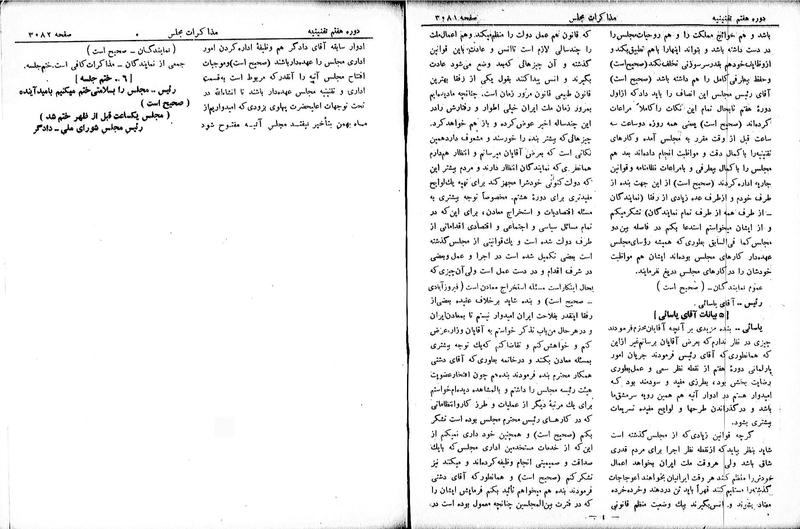 دوره هفتم تقنینیه
مذاکرات مجلس
صفحه ۳۰۸۱
باشد و هم حوائج مملکت را و هم روحیات مجلس را
در دست داشته باشد و بتواند اینها را باهم تطبیق بکند و
از وظایف خودهم بقدر سرسوزنی تخلف نکند (صحیح است)
و حفظ بیطرفی کامل را هم داشته باشد (صحیح است)
آقای رئیس مجلس این انصاف را باید داد که از اول
دورهٔ هفتم تا بحال تمام این نکات را کاملاً مراعات
کرده‌اند (صحیح است) یعنی همه روزه دو ساعت سه
ساعت قبل از وقت مقرر به مجلس آمده و کارهای
تقنینیه را با کمال دقت و مواظبت انجام داده‌اند بعد هم
مجلس را با کمال بیطرفی و با مراعات نظامنامه و قوانین
جاریه اداره کردند (صحیح است) از این جهت بنده از
طرف خودم و از طرف عده زیادی از رفقا (نمایندگان
ـ از طرف همه از طرف تمام نمایندگان) تشکر میکنم
و از ایشان میخواستم استدعا بکنم در فاصله بین دو
مجلس کما فی السابق بطوری که همیشه رؤسای مجلس
عهده‌دار کارهای مجلس بوده‌اند ایشان هم مواظبت
خودشان را در کارهای مجلس دریغ نفرمایند.
عموم نمایندگان ـ (صحیح است)
رئیس ـ آقای یاسائی.
[۵ بیانات آقای یاسائی]
یاسائی ـ بنده مزیدی بر آنچه آقایان محترم فرمودند
چیزی در نظر ندارم که بعرض آقایان برسانم غیر از این
که همانطوری که آقای رئیس فرمودند جریان امور
پارلمانی دورهٔ هفتم از نقطه نظر سعی و عمل بطوری
رضایت بخش بوده بطرزی مفید و سودمند بود که
امیدوار هستم در ادوار آتیه هم همین رویه سرمشق ما
باشد و در گذراندن طرحها و لوایح مفیده تسریعات
بیشتری بشود.
گرچه قوانین زیادی که از مجلس گذشته است
شاید بنظر بیاید که از نقطه نظر اجرا برای مردم قدری
شاق باشد ولی هر وقت ملت ایران بخواهد اعمال
خودش را منظم کند هر وقت ایرانیان بخواهند اعوجاجات
گذشته را مستقیم کنند قهراً باید تن در دهند و خرده خرده
معتاد بشوند و انس بگیرند بیک وضعیت منظم قانونی
که قانون هم عمل دولت را منظم میکند و هم اعمال ملت
را چندسالی لازم است تا انس و عادت باین قوانین
گذشته و آن چیزهائی که بعد وضع می‌شود عادت
بگیرند و انس پیدا کنند بقول یکی از رفقا بهترین
قانون طبیعی قانون مرور زمان است. چنانچه ما دیده‌ایم
بمرور زمان ملت ایران خیلی اطوار و رفتارش را در
این چندساله اخیر عوض کرده و باز هم خواهد کرد.
چیزهائی که بیشتر بنده را خورسند و مشعوف دارد همین
نکاتی است که بعرض آقایان میرسانم و انتظار هم دارم
همانطوری که نمایندگان انتظار دارند و مردم بیشتر این
که دولت کنونی خودش را مجهز کند برای تهیه یک لوایح
مفیدتری برای دورهٔ هشتم. مخصوصاً توجه بیشتری به
مسئله اقتصادیات و استخراج معادن. برای این که در
تمام مسائل سیاسی و اجتماعی و اقتصادی اقداماتی از
طرف دولت شده است و یک قوانینی از مجلس گذشته
است بعضی تکمیل شده است در اجرا و عمل و بعضی
در شرف اقدام و در دست عمل است ولی آن چیزی که
بحال ابتکار است مسئله استخراج معادن است (فیروزآبادی
ـ صحیح است) و بنده شاید برخلاف عقیده بعضی از
رفقا اینقدر بفلاحت ایران امیدوار نیستم تا بمعادن ایران
و در هر حال من باب تذکر خواستم به آقایان وزراء عرض
کنم و خواهش کنم و تقاضا کنم که یک توجه بیشتری
بمسئله معادن بکنند و در خاتمه بطوری که آقای دشتی
همکار محترم بنده فرمودند بنده هم چون افتخار عضویت
هیئت رئیسه مجلس را داشتم و بالمشاهده دیده‌ام خواستم
برای یک مرتبهٔ دیگر از عملیات و طرز کار و انتظاماتی
که در کارهای رئیس محترم مجلس بوده است تشکر
بکنم (صحیح است) و همچنین خودداری نمیکنم از
این که از خدمات مستخدمین اداری مجلس که با یک
صداقت و صمیمیتی انجام وظیفه کرده‌اند و میکنند نیز
تشکر کنم (صحیح است) و همانطور که آقای دشتی
فرمودند بنده هم میخواهم تأکید بکنم فرمایش ایشان را
که در فترت بین‌المجلسین چنانچه معمول بوده است در
دوره هفتم تقنینیه
مذاکرات مجلس
صفحه ۳۰۸۲
ادوار سابقه آقای دادگر هم وظیفهٔ اداره کردن امور
اداری مجلس را عهده‌دار باشند (صحیح است) و موجبات
افتتاح مجلس آتیه را آنقدر که مربوط است بقسمت
اداری و تقنینیه مجلس عهده‌دار باشند تا انشاءالله در
تحت توجهات اعلیحضرت پهلوی بزودی که امیدواریم از
ماه بهمن بتأخیر نیفتد مجلس آتیه مفتوح شود
(نمایندگان ـ صحیح است)
جمعی از نمایندگان ـ مذاکرات کافی است. ختم جلسه.
[۶ ـ ختم جلسه]
رئیس ـ مجلس را بسلامتی ختم میکنیم بامید آینده
(صحیح است)
(مجلس یکساعت قبل از ظهر ختم شد)
رئیس مجلس شورای ملی ـ دادگر